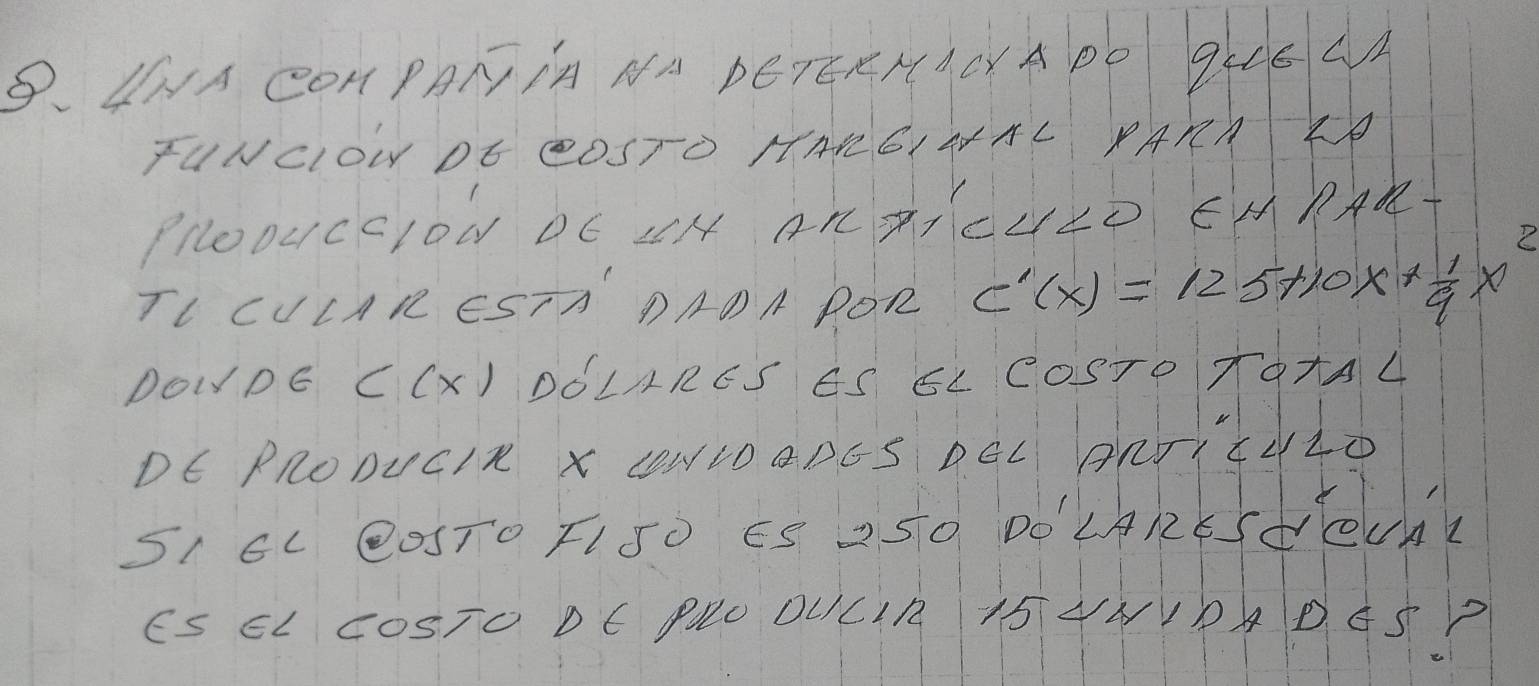 9. UNA COMPAÑÍA HA DETERMINADO QUE LA
FUNCIÓN DE COSTO MARGINAL PARA LA
PRODUCCIÓN DE UN ARTÍCULO EN PAR-
TICULAR ESTÁ DADA POR C'(x) = 125+10x+1/9 x²
DONDE C(x) DÓLARES ES EL COSTO TOTAL
DE PRODUCIR x UNIDADES DEL ARTÍCULO
SI EL COSTO FIJO ES 250 DÓLARES ¿CUÁL
ES EL COSTO DE PRODUCIR 15 UNIDADES?